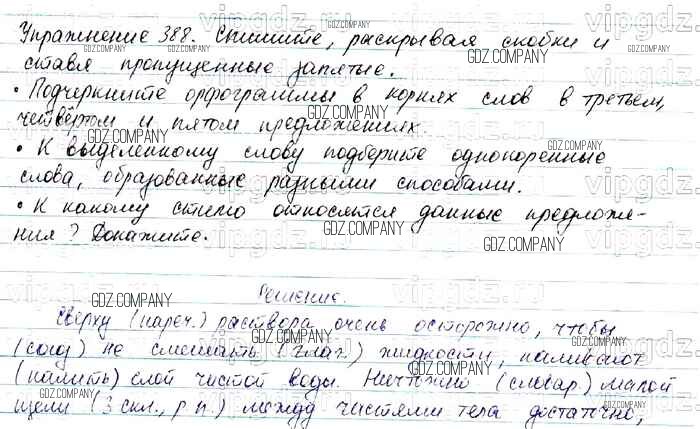 Упражнение 388. Спишите, раскрывая скобки и
ставя пропущенные запятые.
• Подчеркните орфограммы в корнях слов в третьем,
четвёртом и пятом предложениях.
• К выделенному слову подберите однокоренные
слова, образованные разными способами.
• К какому стилю относятся данные предложе-
ния? Докажите.
Решение.
Сверху (нареч.) раствора очень осторожно, чтобы
(союз) не смешать (глаг.) жидкости, наливают
(налить) слой чистой воды. Ничтожно (словар.) малой
щели (3 скл., р.п.) между частями тела достаточно,
GDZ.COMPANY
vipgdz.ru